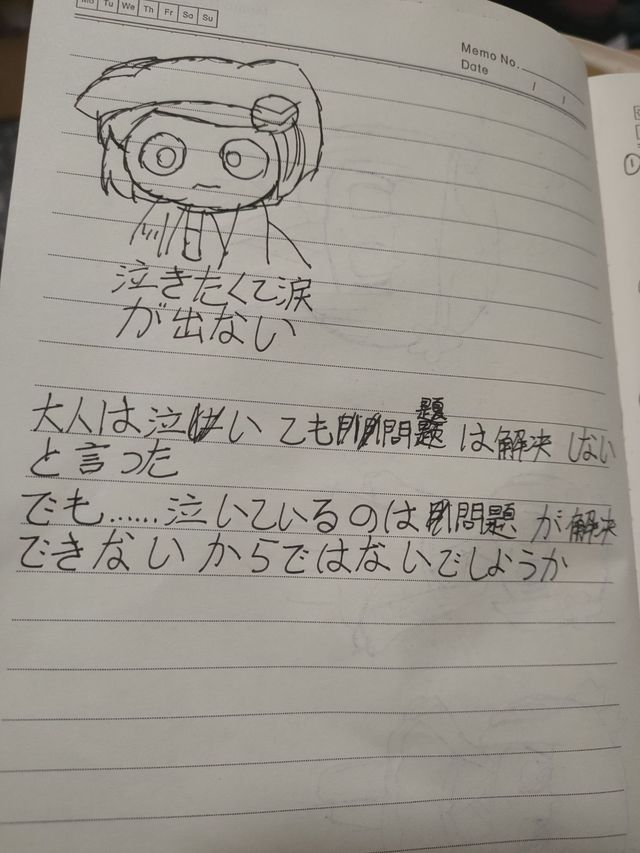 Mo Tu We Th Fr Sa Su
Memo No.
Date / /
泣きたくて涙
が出ない
大人は泣いても問題は解決しない
と言った
でも……泣いているのは問題が解決
できないからではないでしょうか